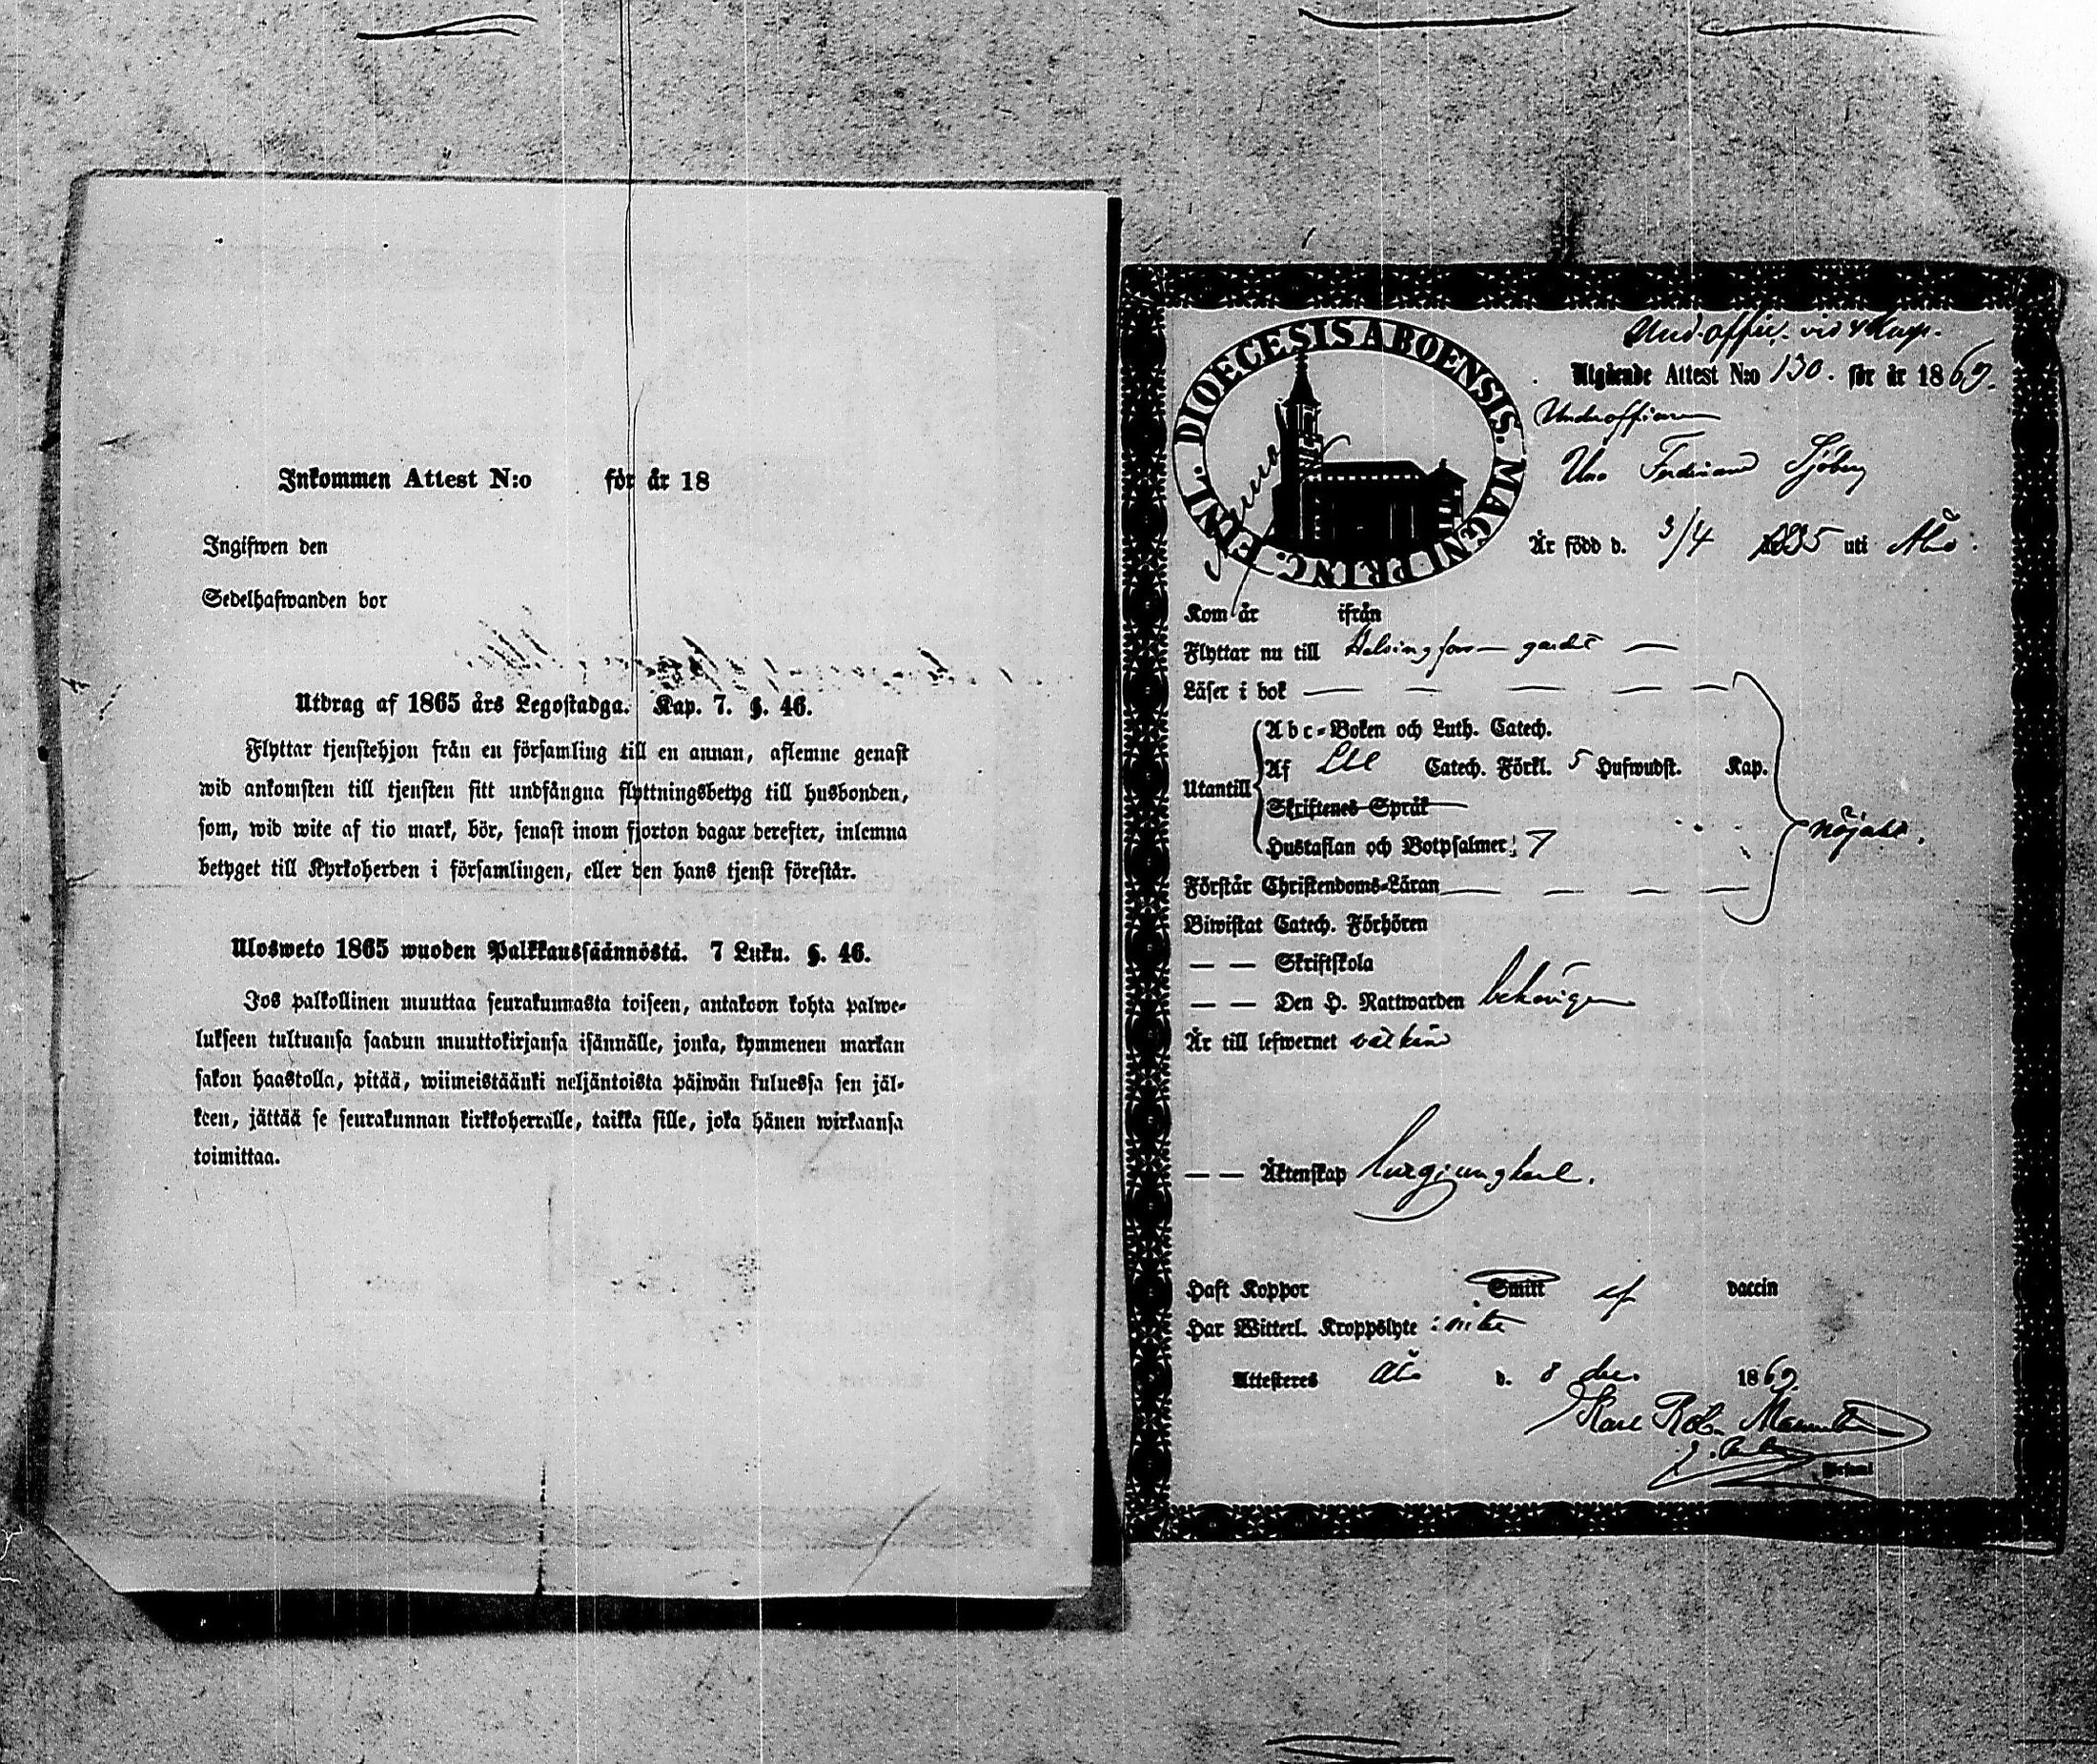 Inkommen Attest N:o för år 18
Ingifwen den
Sedelhafwanden bor
Utdrag af 1865 års Legostadga. Kap. 7. §. 46.
Flyttar tjenstehjon från en församling till en annan, aflemne genast
wid ankomsten till tjensten sitt undfångna flyttningsbetyg till husbonden,
som, wid wite af tio mark, bör, senast inom fjorton dagar derefter, inlemna
betyget till Kyrkoherden i församlingen, eller den hans tjenst förestår.
Ulosweto 1865 wuoden Palkkaussäännöstä. 7 Luku. §. 46.
Jos palkollinen muuttaa seurakunnasta toiseen, antakoon kohta palwe-
lukseen tultuansa saadun muuttokirjansa isännälle, jonka, kymmenen markan
sakon haastolla, pitää, wiimeistäänki neljäntoista päiwän kuluessa sen jäl-
keen, jättää se seurakunnan kirkkoherralle, taikka sille, joka hänen wirkaansa
toimittaa.
DIOECESIS ABOENSIS. MAGNI PRINC. FINL.
Und.offic. vid
Utgående Attest N:o 130. för år 1869.
Underofficeren
Uno Ferdinand Sjöberg
Är född d. 3/4 1835 uti Åbo.
Kom år ifrån
Flyttar nu till Helsingfors gardet
Läser i bok
Utantill
Abc-Boken och Luth. Catech.
Af Catech. Förkl. 5 Hufwudst. Kap.
Skriftenes Språk
Hustaflan och Botpsalmer: 7
nöjakt.
Förstår Christendoms-Läran
Biwistat Catech. Förhören
— — Skriftskola
— — Den H. Nattwarden behörigen
Är till lefwernet välkänd
— — Äktenskap ungkarl.
Haft Koppor Smitt af vaccin
Har Witterl. Kroppslyte: intet
Attesteras Åbo d. 8 dec. 1869.
Karl Rob. Malmström